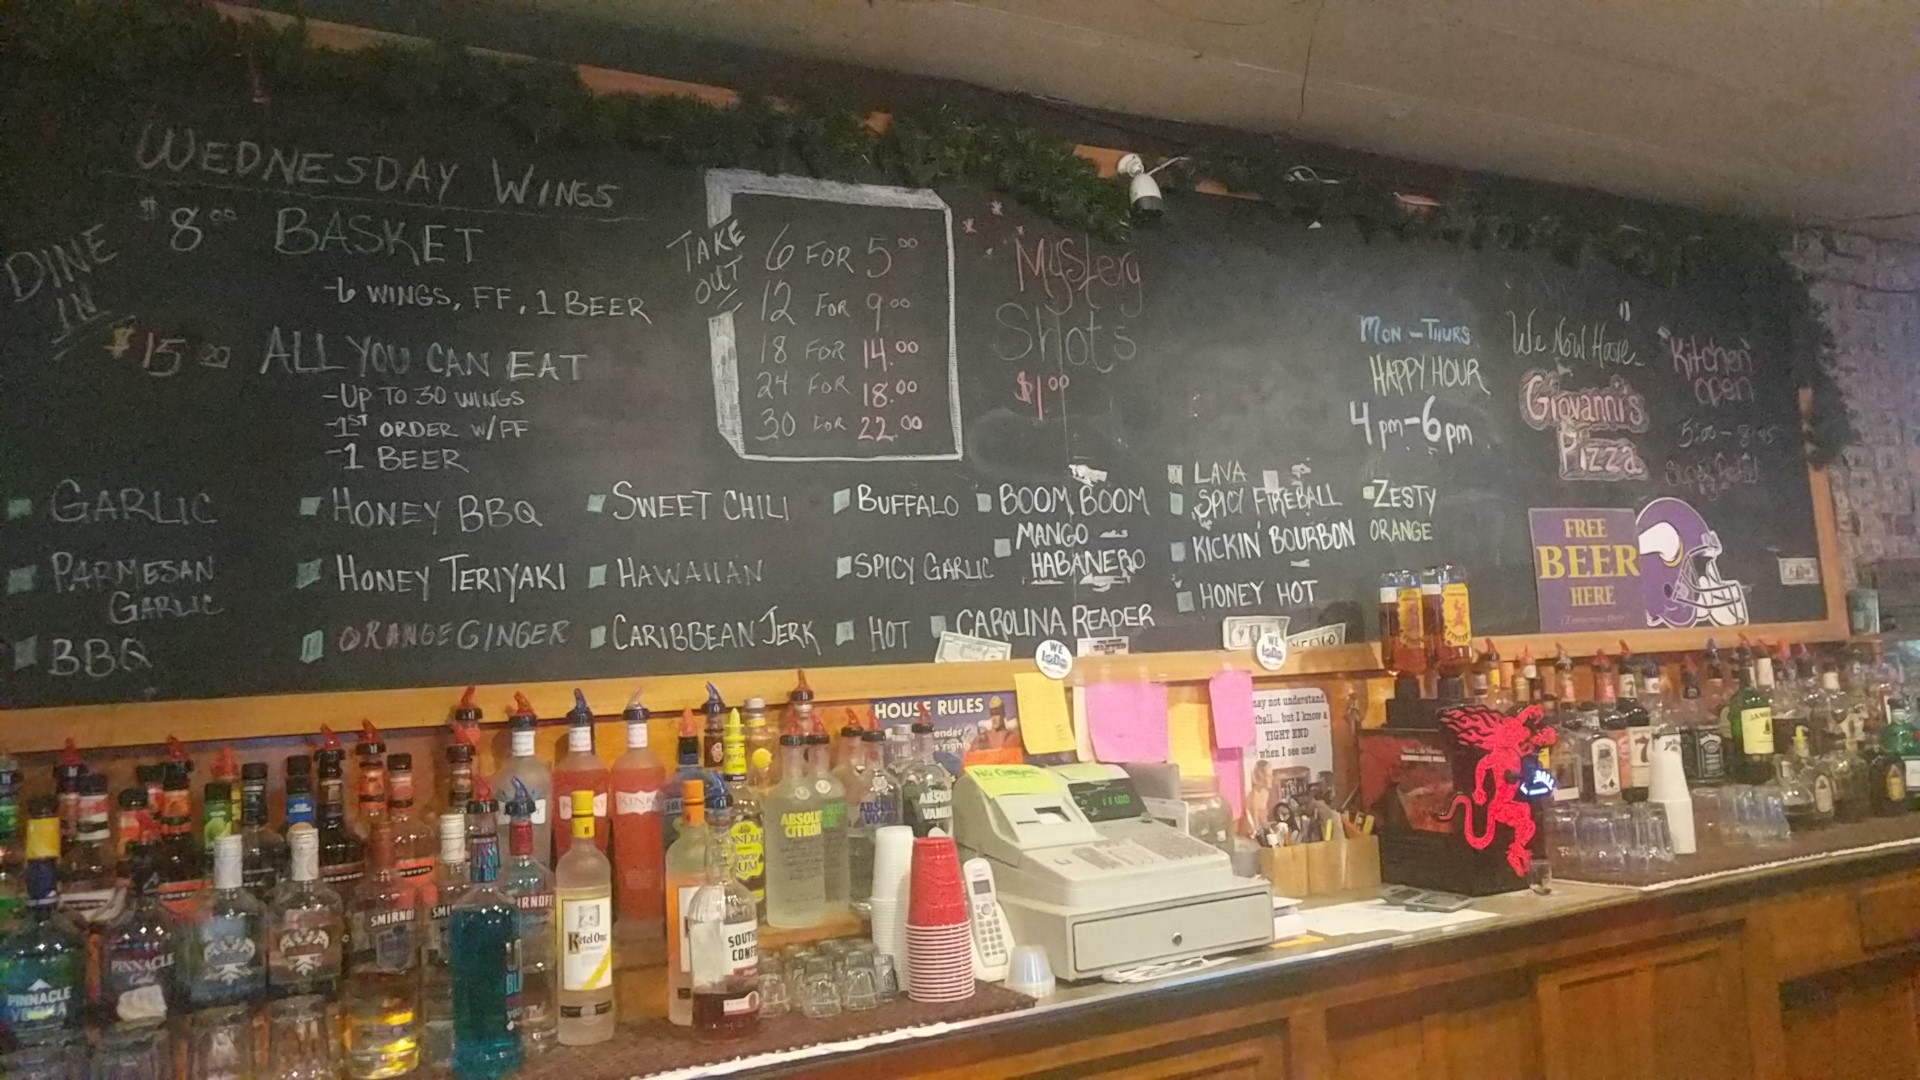 WEDNESDAY WINGS
DINE
IN
$8.00 BASKET
-6 WINGS, FF, 1 BEER
$15.00 ALL YOU CAN EAT
-UP TO 30 WINGS
-1ST ORDER W/FF
-1 BEER
TAKE
OUT
6 FOR 5.00
12 FOR 9.00
18 FOR 14.00
24 FOR 18.00
30 FOR 22.00
Mystery
Shots
$1.00
MON - THURS
HAPPY HOUR
4pm-6pm
We Now Have
Giovanni's
Pizza
"Kitchen"
open
GARLIC
PARMESAN
GARLIC
BBQ
HONEY BBQ
HONEY TERIYAKI
ORANGE GINGER
SWEET CHILI
HAWAIIAN
CARIBBEAN JERK
BUFFALO
SPICY GARLIC
HOT
BOOM BOOM
MANGO
HABANERO
CAROLINA REAPER
LAVA
SPICY FIREBALL
KICKIN' BOURBON
HONEY HOT
ZESTY
ORANGE
FREE
BEER
HERE
HOUSE RULES
may not understand
but I know a
TIGHT END
when I see one!
PINNACLE
VODKA
PINNACLE
SMIRNOFF
Ketel One
SOUTH
COMF
ABSOLUT
CITRON
ABSOLUT